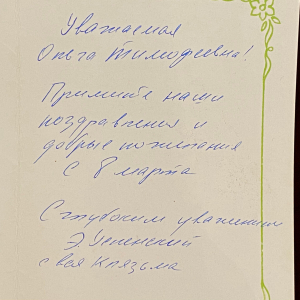 Уважаемая
Ольга Тимофеевна!
Примите наши
поздравления и
добрые пожелания
с 8 марта
С глубоким уважением
Э. Успенский
и вся Клязьма